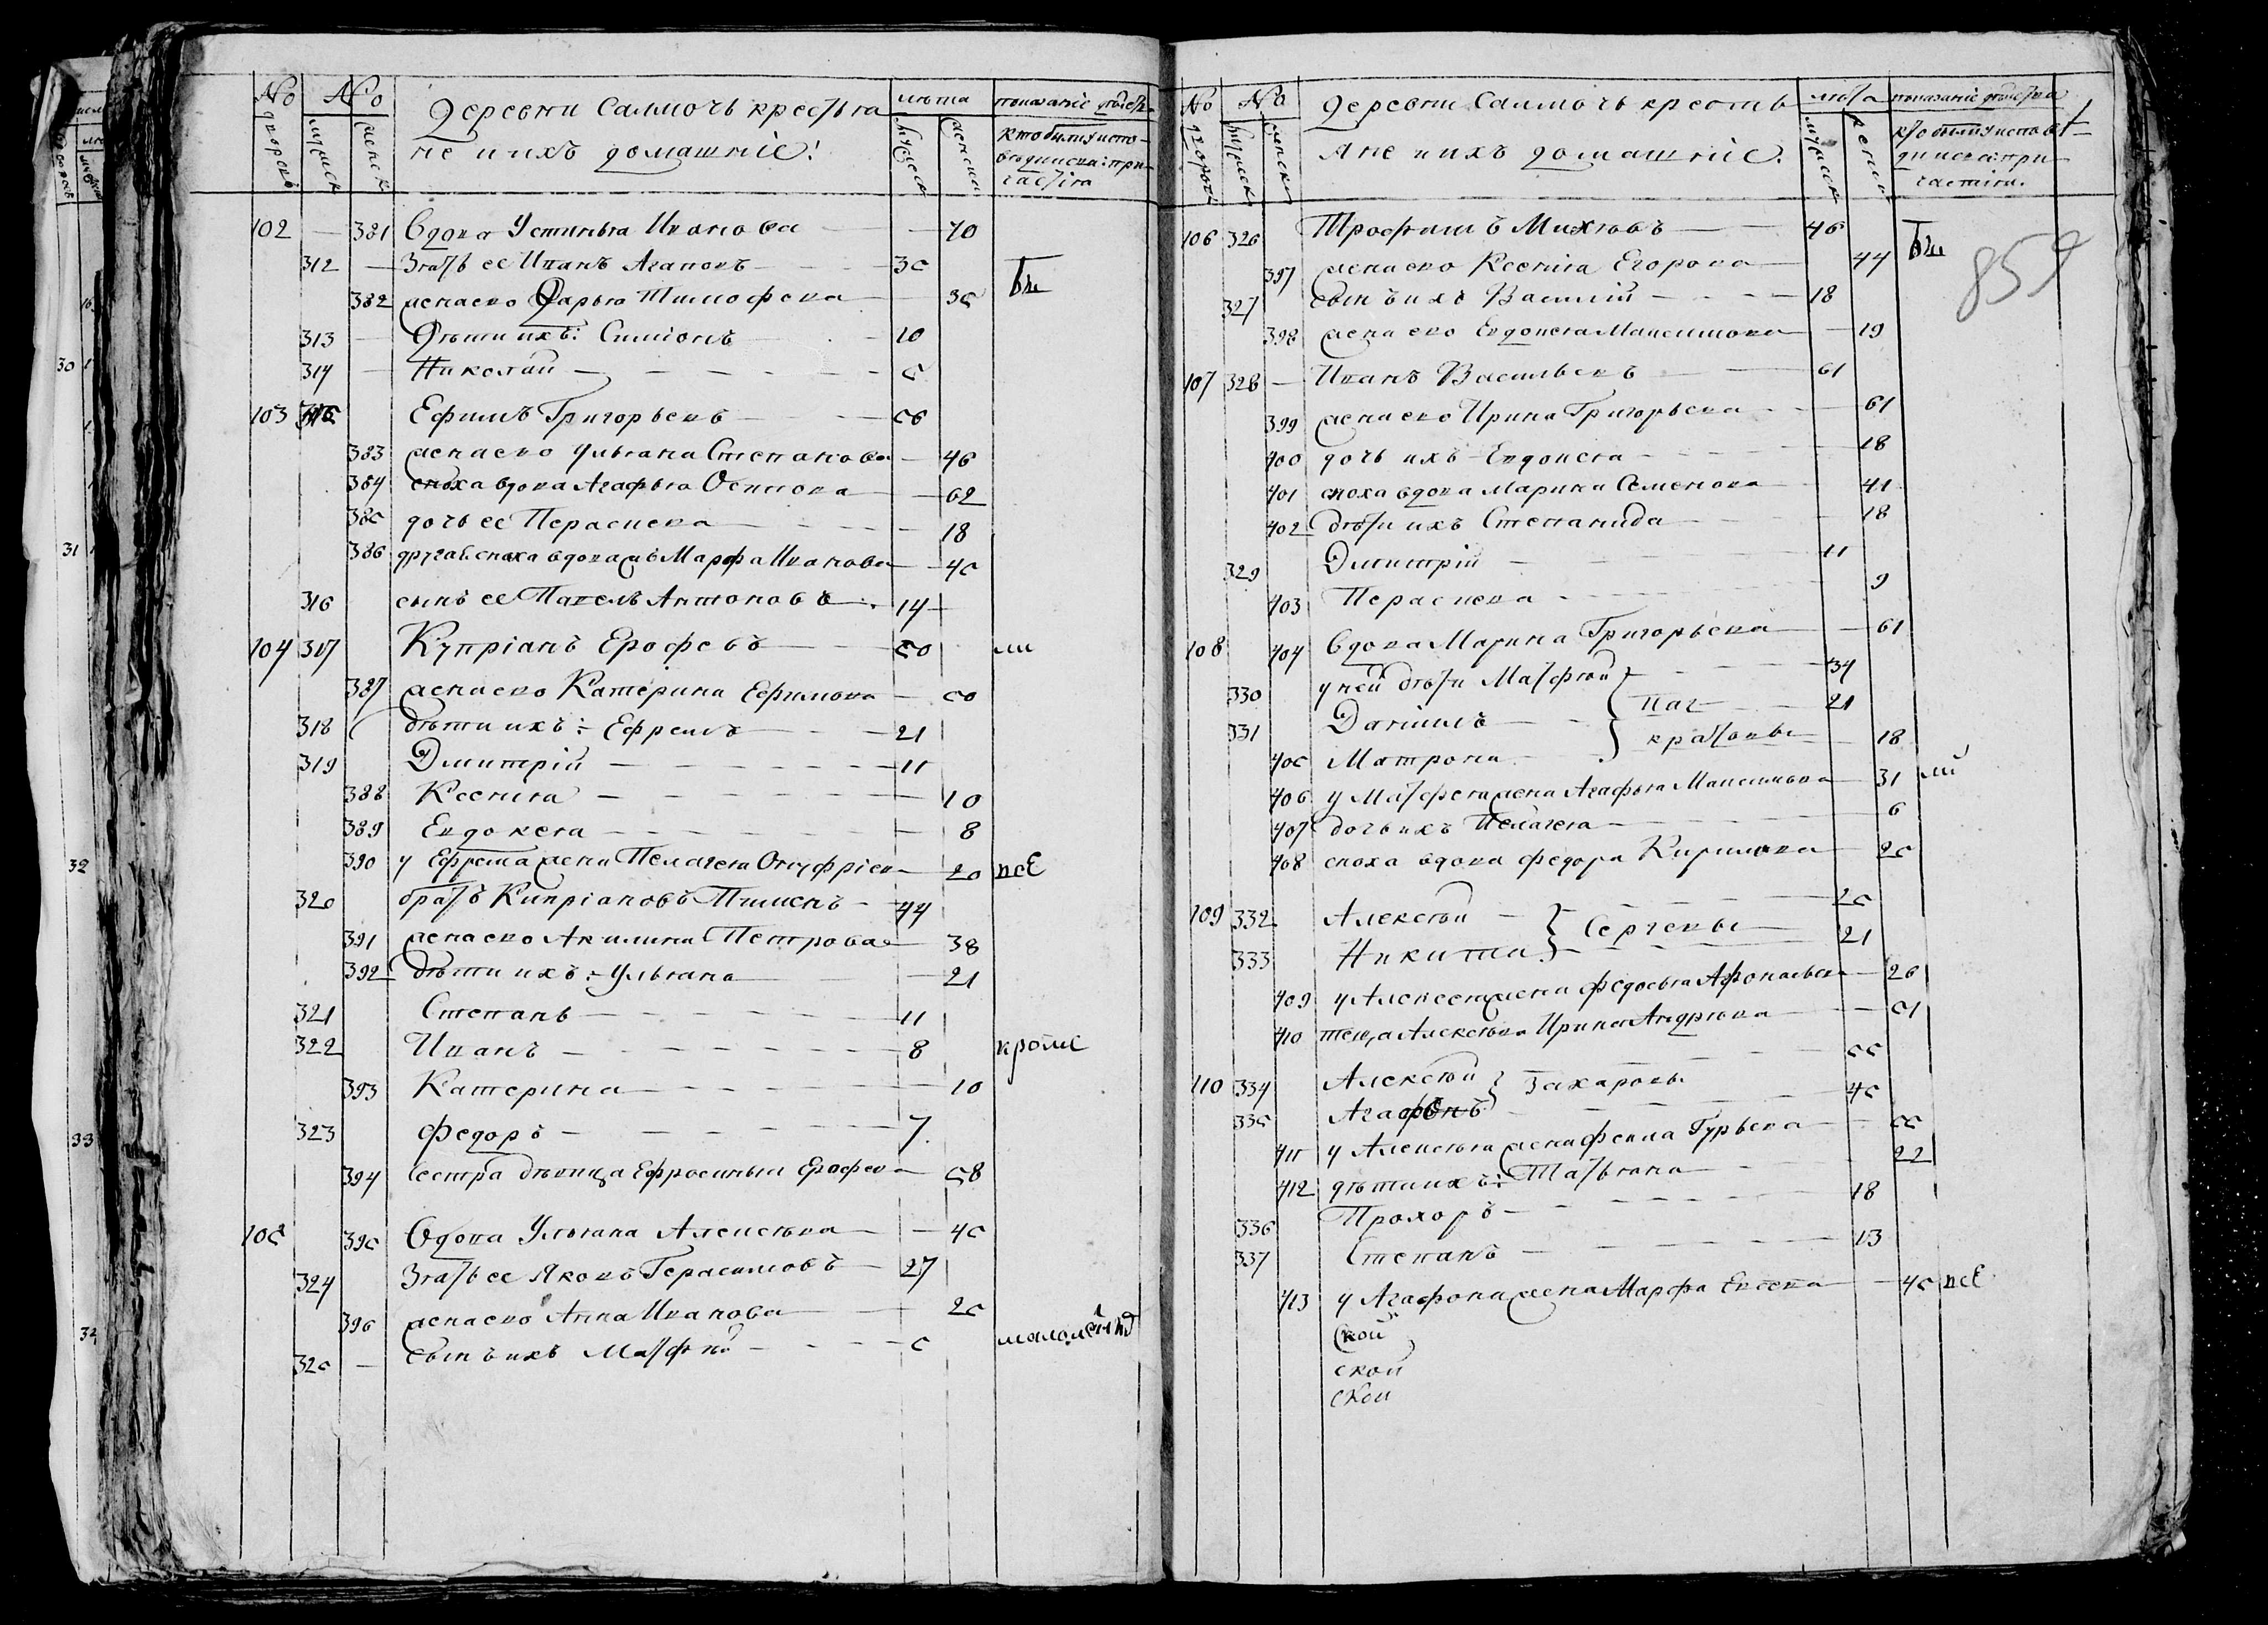 No No деревни Салмочь крестья лѣта показаніе дѣйства
не и ихъ домашніе:
дворовъ мужеск женск мужеск женски
кто были у испо-
вѣди и св: при-
частія
102 — 381 Вдова Устинья Иванова — 70
312 — Зять ее Иванъ Агаповъ — 35
382 жена его Дарья Тимофева — 35 бы
313 — Дѣти ихъ: Симіонъ — 10
314 — Николай — 5
103 315 Ефимъ Григорьевъ — 56
383 жена его Ульяна Степанова — 46
384 сноха вдова Агафья Осипова — 62
385 дочь ее Пераскева — 18
386 другая сноха вдова Марфа Иванова — 45
316 сынъ ее Павелъ Антоновъ — 14
104 317 Купріанъ Ерофевъ — 50 ли
387 жена его Катерина Ефимова — 50
318 дѣти ихъ: Ефремъ — 21
319 Дмитрій — 11
388 Ксения — 10
389 Евдокея — 8
390 у Ефрема жена Пелагея Онуфріев — 20 все
320 братъ Кипріановъ Пимень — 44
391 жена его Акилина Петрова — 38
392 дѣти ихъ: Ульяна — 21
321 Степанъ — 11
322 Иванъ — 8 кроме
393 Катерина — 10
323 Федоръ — 7
394 Сестра дѣвица Ефросинья Ерофев — 58
105 395 Вдова Ульяна Алексѣва — 45
324 Зять ее Яковъ Герасимовъ — 27
396 жена его Анна Иванова — 25
325 — сынъ ихъ Матфей — 5
No No деревни Салмочь крестья лѣта показаніе дѣйства
не и ихъ домашніе.
дворовъ мужеск женск мужеск женски
кто были у исповѣ
ди и св: при-
частія.
106 326 Трофимъ Михѣевъ — 46 бы
397 жена его Ксения Егорова — 44
859
327 сынъ ихъ Василій — 18
398 жена его Евдокея Максимова — 19
107 328 — Иванъ Васильевъ — 61
399 жена его Ирина Григорьева — 61
400 дочь ихъ Евдокея — 18
401 сноха вдова Марина Семенова — 41
402 дѣти ихъ Степанида — 18
329 Дмитрій — 11
403 Пераскева — 9
108 404 Вдова Марина Григорьева — 61
330 у ней дѣти Матфей — 34
331 Даніилъ } Пан — 21
405 Матрона кратовы — 18
406 у Матфея жена Агафья Максимова — 31 ли
407 дочь ихъ Пелагея — 6
408 сноха вдова Федора Кирилова — 25
109 332 Алексѣй — 25
} Сергеевы
333 Никита — 21
409 у Алексея жена Федосья Афонасьев — 26
410 теща Алексѣва Ирина Андрѣева — 51
110 334 Алексѣй } Захаровы — 55
335 Агафонъ — 45
411 у Алексѣя жена Фекла Гурьева — 55
412 дѣти ихъ: Татьяна — 22
336 Прохоръ — 18
337 Степанъ — 13
413 у Агафона жена Марфа Евсева — 45 все
ской
ской
ской